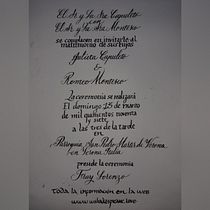 El Sr y La Sra Capuleto
con
El Sr y La Sra Montesco
se complacen en invitarle al
matrimonio de sus hijos
Julieta Capuleto
&
Romeo Montesco
La ceremonia se realizará
El domingo 15 de marzo
de mil quinientos noventa
y siete
a las tres de la tarde
en
Parroquia San Pedro Mártir de Verona
en Verona Italia
preside la ceremonia
Fray Lorenzo
Toda la información en la web